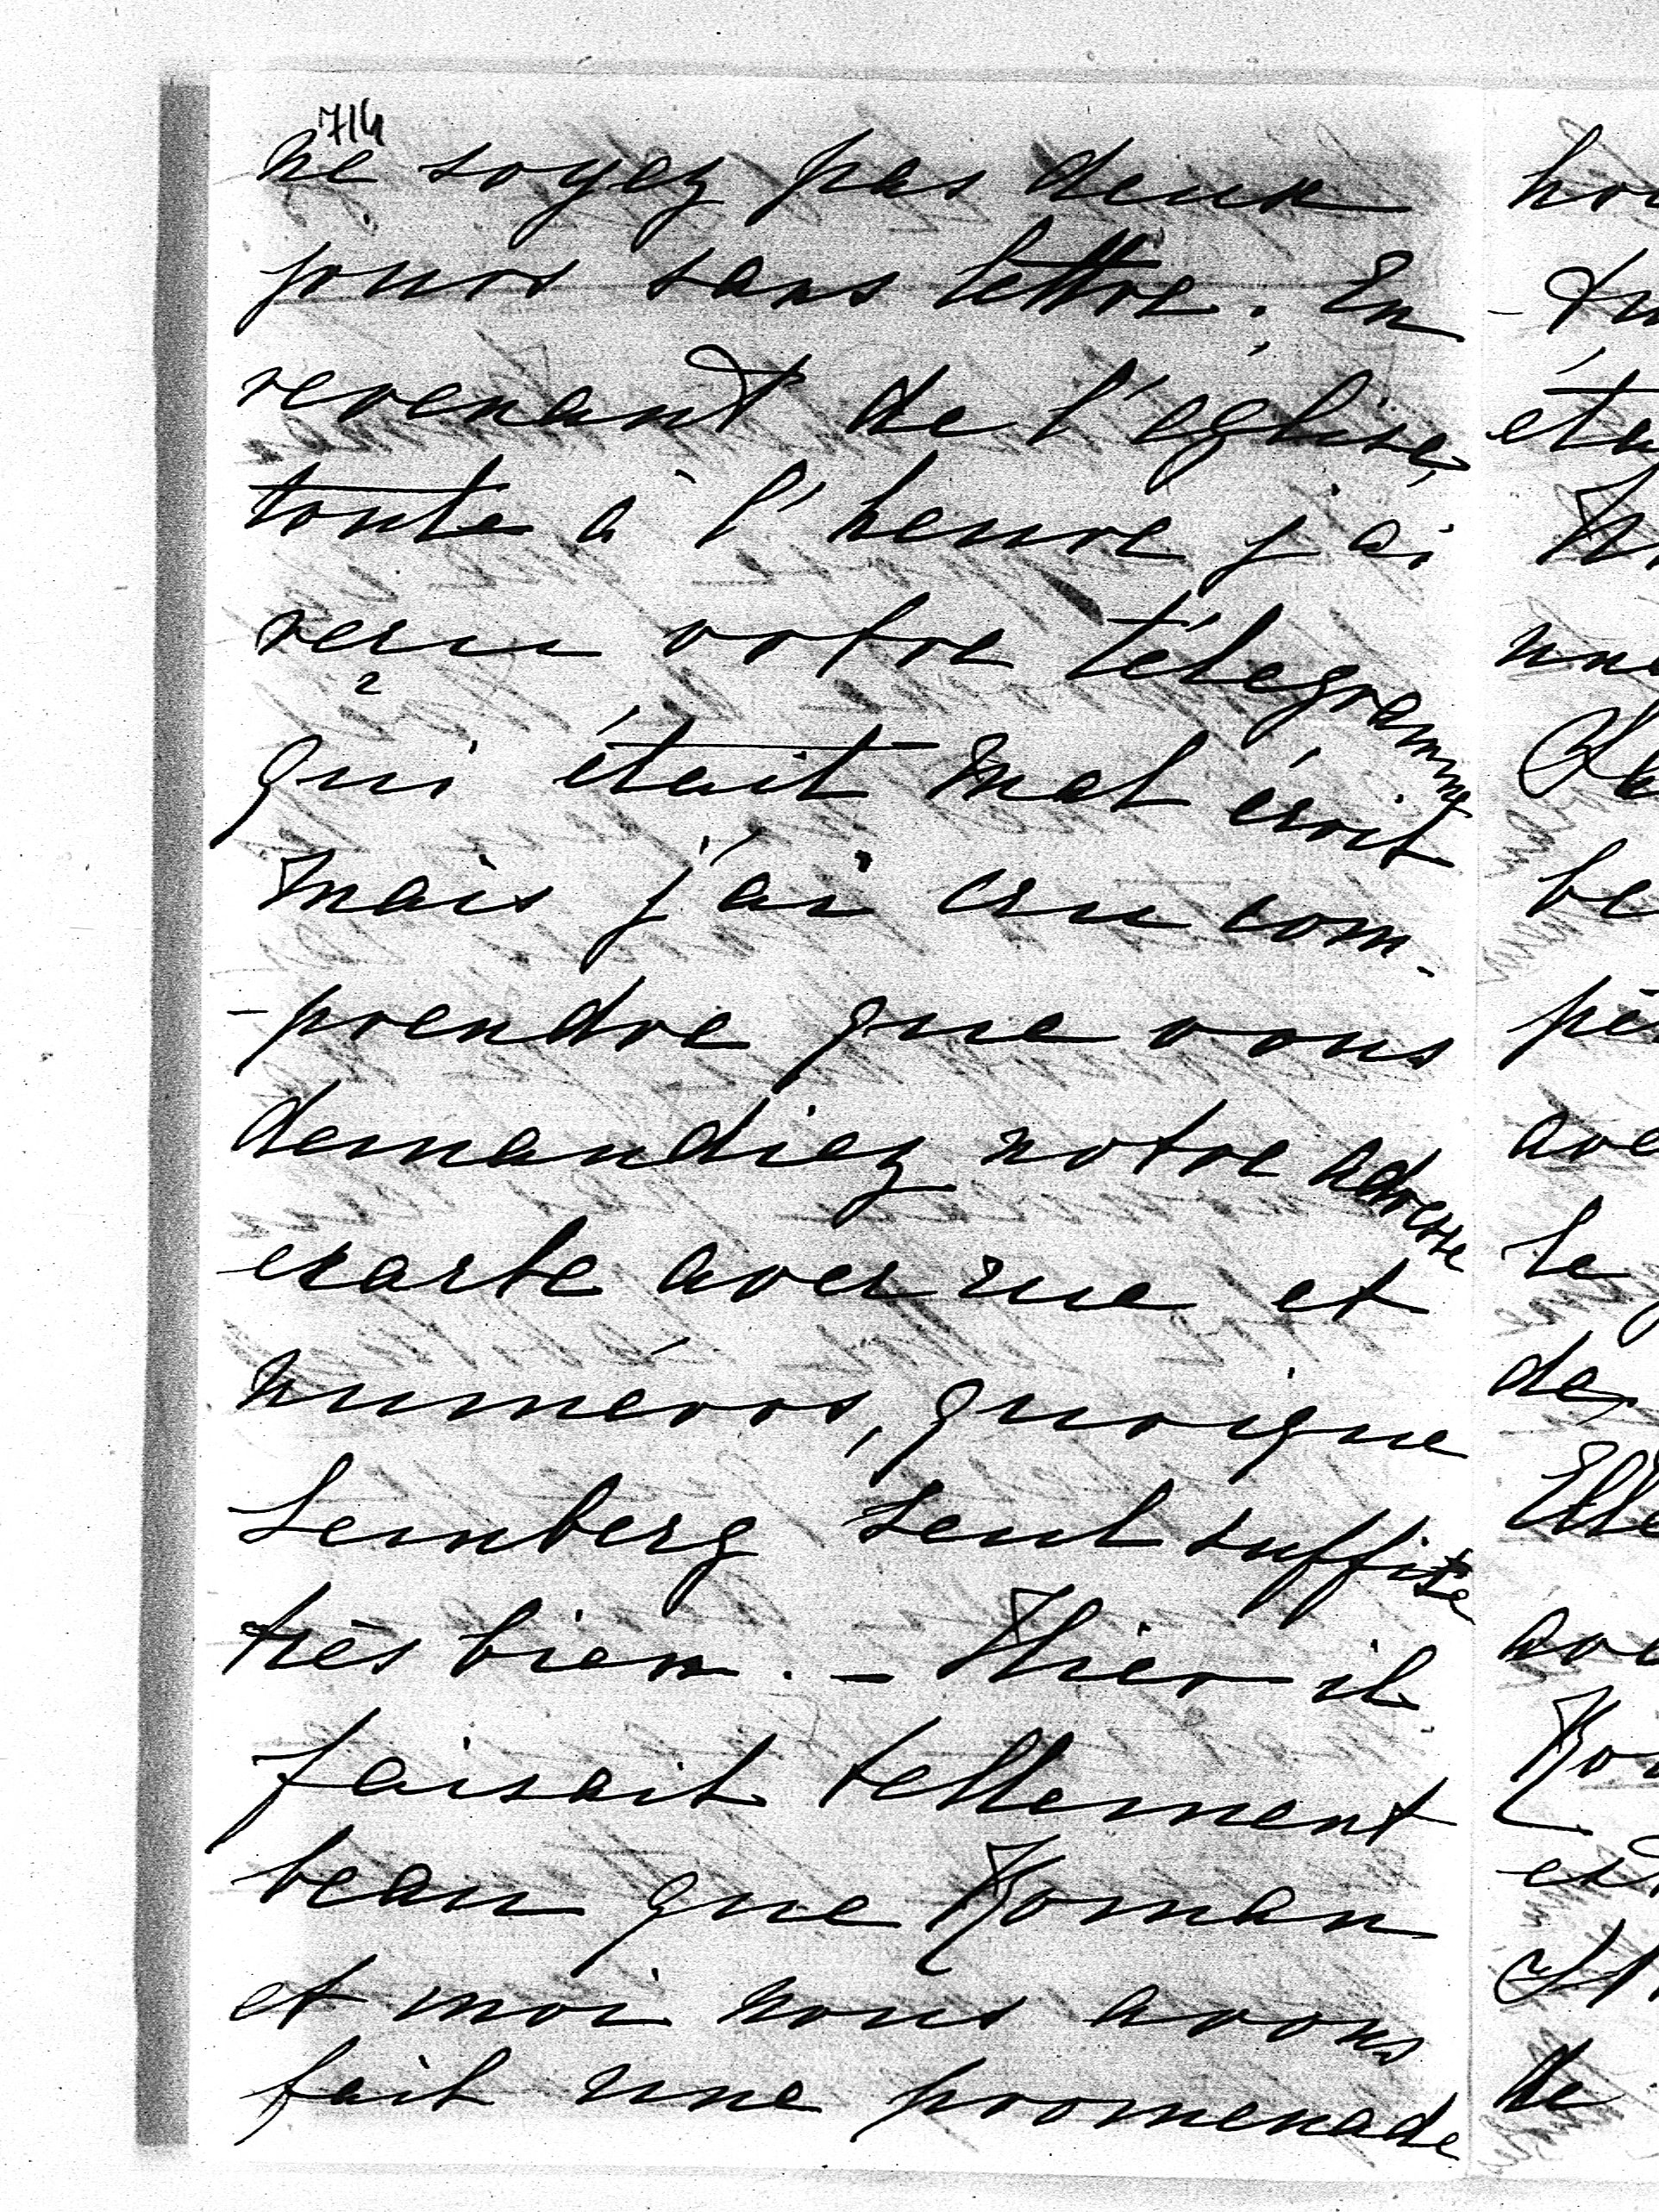 714
ne soyez pas deux
jours sans lettre. En
revenant de l'église,
toute à l'heure j'ai
reçu votre télégramme
qui était mal écrit
mais j'ai cru com-
-prendre que vous
demandiez notre adresse
exacte avec rue et
numéros, quoique
Lemberg seul suffise
très bien. - Hier il
faisait tellement
beau que Roman
et moi nous avons
fait une promenade